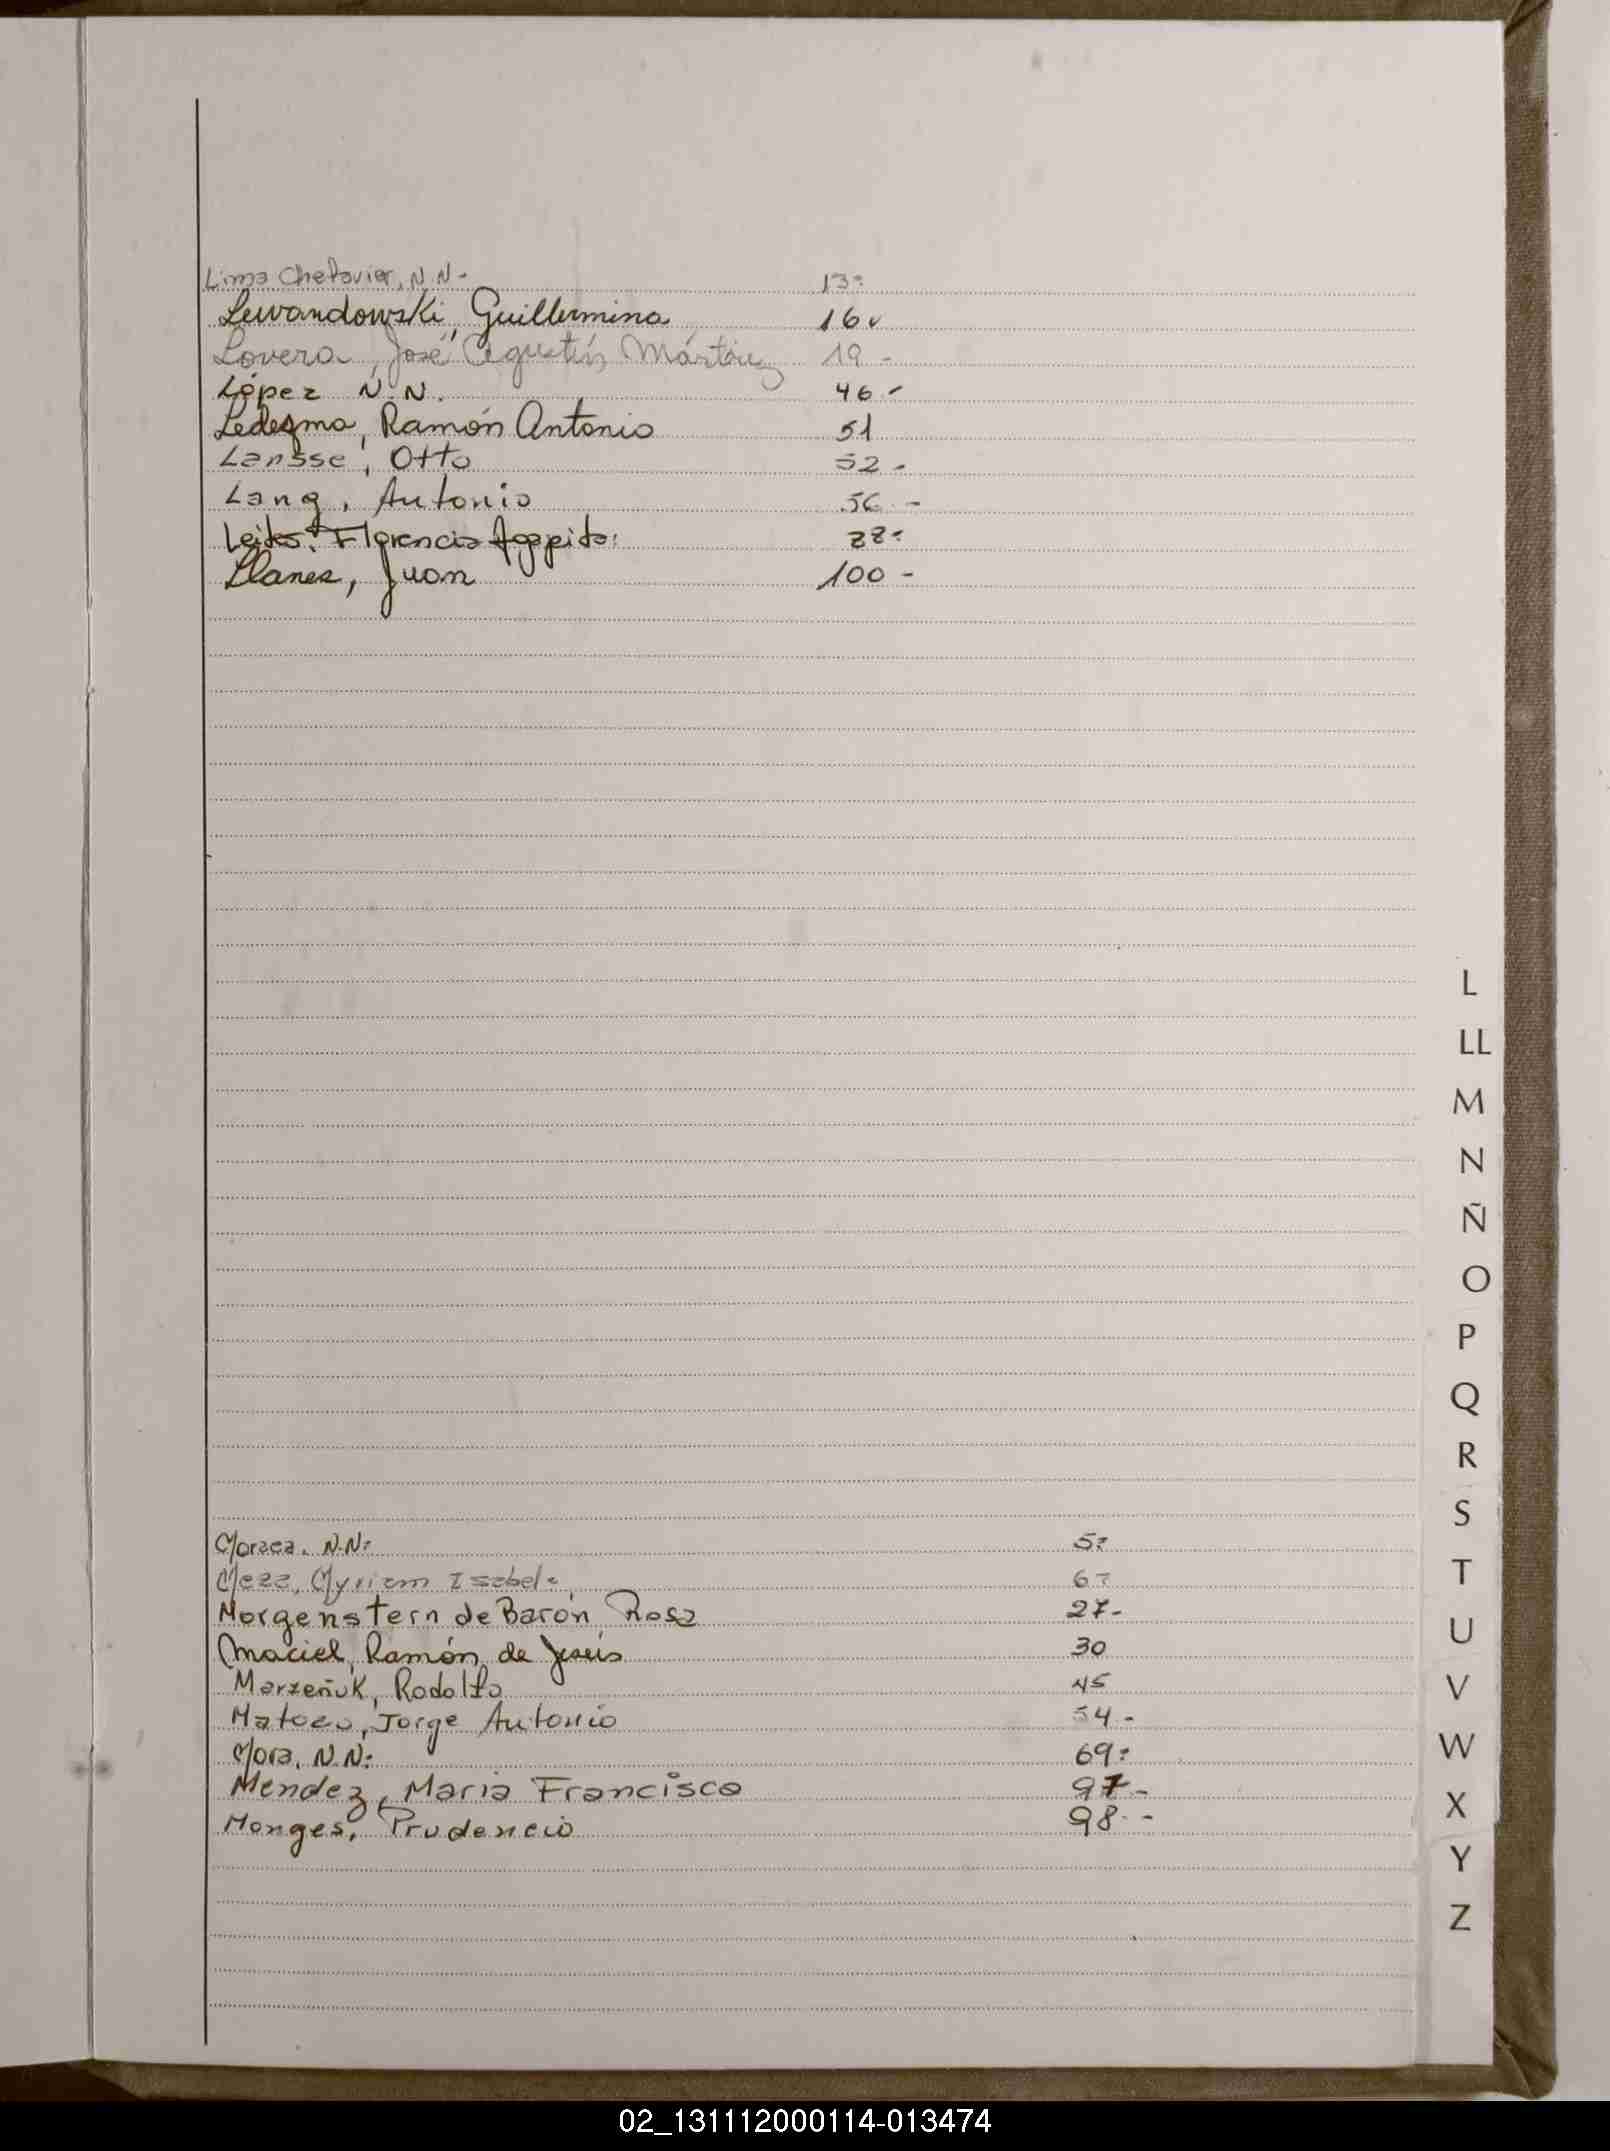 Lima Chetavier, N.N.- 13=
Lewandowski, Guillermina 16v
Lovera, José Agustín Mártir 19 -
López N.N. 46.-
Ledezma, Ramón Antonio 51
Lansse, Otto 52.-
Lang, Antonio 56.-
Leites. Florencio Agapito:
Llanes, Juan 100 -
L
LL
M
N
Ñ
O
P
Q
R
S
T
U
V
W
X
Y
Z
N.N= 5=
Meza, Myriam Isabel= 6=
Morgenstern de Barón Rosa 27-
Maciel, Ramón de Jesús 30
Marzeñuk, Rodolfo 45
Jorge Antonio 54.-
Mora, N.N= 69=
Mendez, Maria Francisca 97-
Monges, Prudencio 98.-
02_131112000114-013474